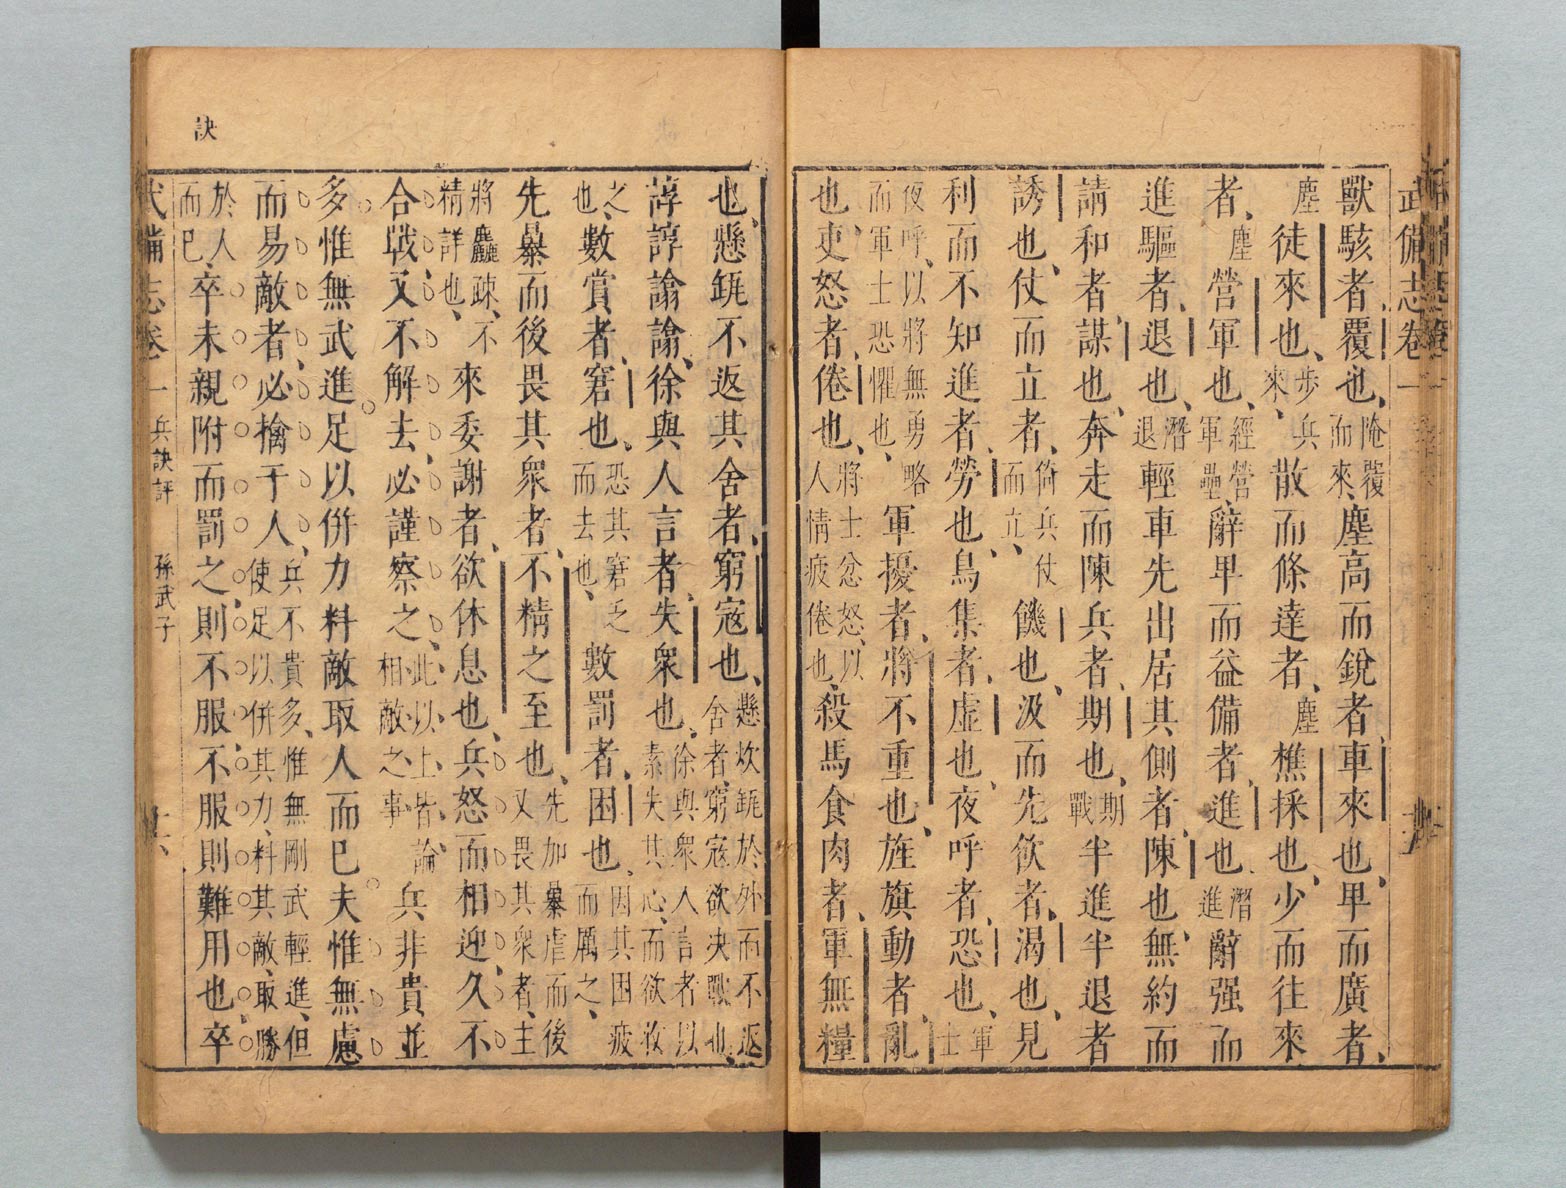 武備志卷一
獸駭者、覆也、掩覆而來、塵高而銳者、車來也、卑而廣者、
塵徒來也、步兵來、散而條達者、塵樵採也、少而往來
者、塵營軍也、經營軍壘、辭卑而益備者、進也、潛進辭强而
進驅者、退也、潛退輕車先出居其側者、陳也、無約而
請和者、謀也、奔走而陳兵者、期也、期戰半進半退者
誘也、仗而立者、倚兵仗而立、饑也、汲而先飲者、渴也、見
利而不知進者、勞也、鳥集者、虛也、夜呼者、恐也、軍士
夜呼、以將無勇略而軍士恐懼也、軍擾者、將不重也、旌旗動者、亂
也、吏怒者、倦也、將士忿怒、以人情疲倦也、殺馬食肉者、軍無糧
也、懸缻不返其舍者、窮寇也、懸炊缻於外而不返舍者、窮寇欲決戰也、
諄諄諭諭、徐與人言者、失衆也、徐與衆人言者以素失其心、而欲收
之也、數賞者、窘也、恐其窘乏而去也、數罰者、困也、因其困疲而厲之、
先暴而後畏其衆者、不精之至也、先加暴虐而後又畏其衆者、主
將麤疎、不精詳也、來委謝者、欲休息也、兵怒而相迎、久不
合戰、又不解去、必謹察之、此以上皆論相敵之事兵非貴並
多惟無武進足以併力料敵取人而已夫惟無慮
而易敵者、必擒于人、兵不貴多、惟無剛武輕進、但使足以併其力、料其敵、取勝
於人而已卒未親附而罰之則不服不服則難用也卒
武備志卷一 兵訣評 孫武子
訣